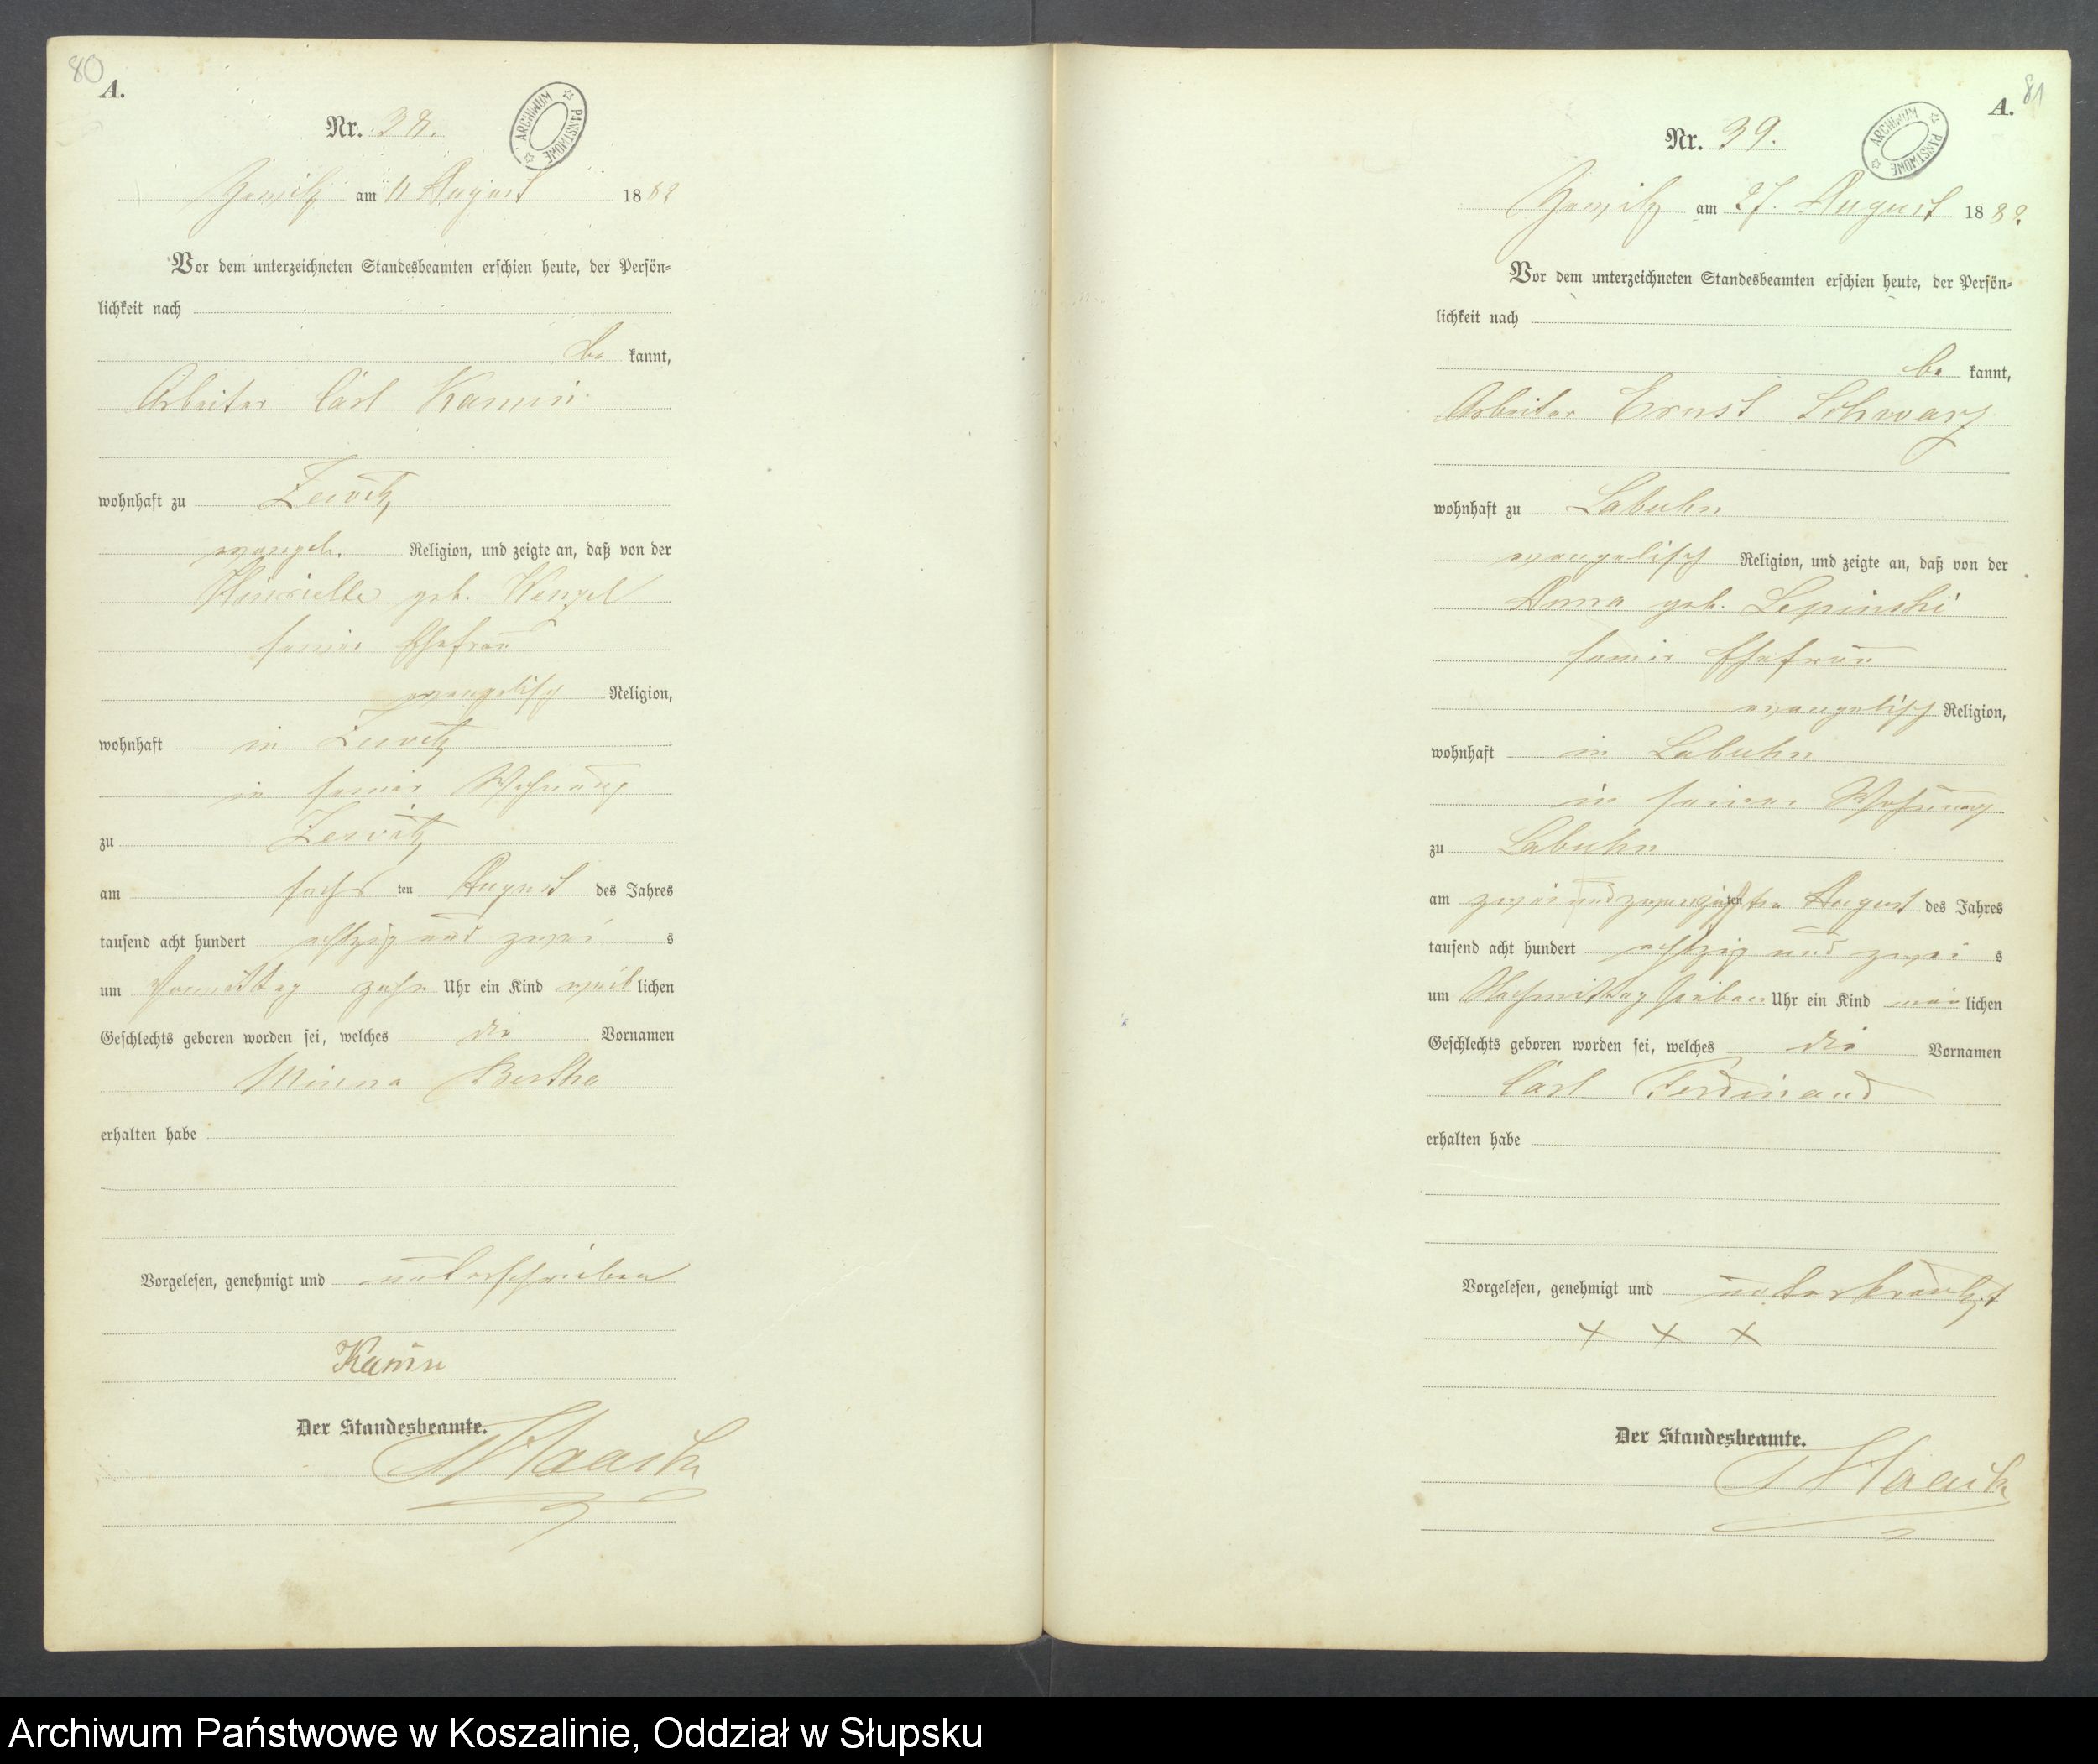 80
A.
Nr. 38.
ARCHIWUM PAŃSTWOWE
am 11 August 1882
Vor dem unterzeichneten Standesbeamten erschien heute, der Persön-
lichkeit nach
be kannt,
Arbeiter Carl Kamin
wohnhaft zu Zewitz
evangel. Religion, und zeigte an, daß von der
Henriette geb. Wenzel
seiner Ehefrau
evangelisch Religion,
wohnhaft in Zewitz
in seiner Wohnung
zu Zewitz
am sechs ten August des Jahres
tausend acht hundert achtzig und zwei s
um Vormittag zehn Uhr ein Kind weib lichen
Geschlechts geboren worden sei, welches die Vornamen
Minna Bertha
erhalten habe
Vorgelesen, genehmigt und unterschrieben
Kamin
Der Standesbeamte.
81
A.
Nr. 39.
ARCHIWUM PAŃSTWOWE
am 27. August 1882
Vor dem unterzeichneten Standesbeamten erschien heute, der Persön-
lichkeit nach
be kannt,
Arbeiter Ernst Schwarz
wohnhaft zu Labuhn
evangelisch Religion, und zeigte an, daß von der
Anna geb. Lepinski
seiner Ehefrau
evangelisch Religion,
wohnhaft in Labuhn
in seiner Wohnung
zu Labuhn
am zweiundzwanzigsten August des Jahres
tausend acht hundert achtzig und zwei s
um Nachmittag sieben Uhr ein Kind lichen
Geschlechts geboren worden sei, welches die Vornamen
Carl Ferdinand
erhalten habe
Vorgelesen, genehmigt und unterkreuzt
x x x
Der Standesbeamte.
Archiwum Państwowe w Koszalinie, Oddział w Słupsku